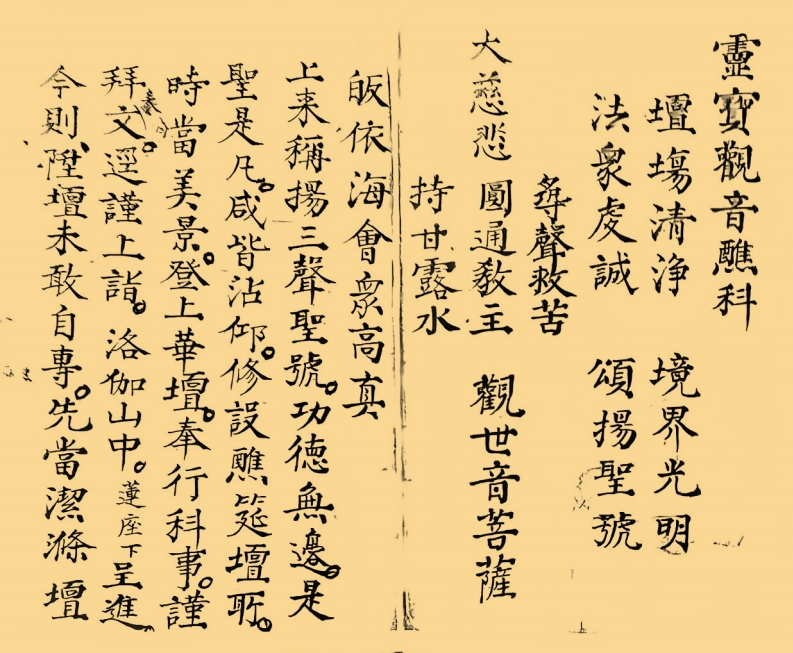 靈寶觀音醮科
壇塲清淨 境界光明
法衆虔誠 頌揚聖號
尋聲救苦
大慈悲 圓通教主 觀世音菩薩
持甘露水
皈依海會衆高真
上来稱揚三聲聖號。功德無邊。是
聖是凡。咸皆沾仰。修設醮筵壇所。
時當美景。登上華壇。奉行科事。謹
拜文。逕謹上詣。洛伽山中。蓮座下呈進
今則陞壇未敢自專。先當潔滌壇